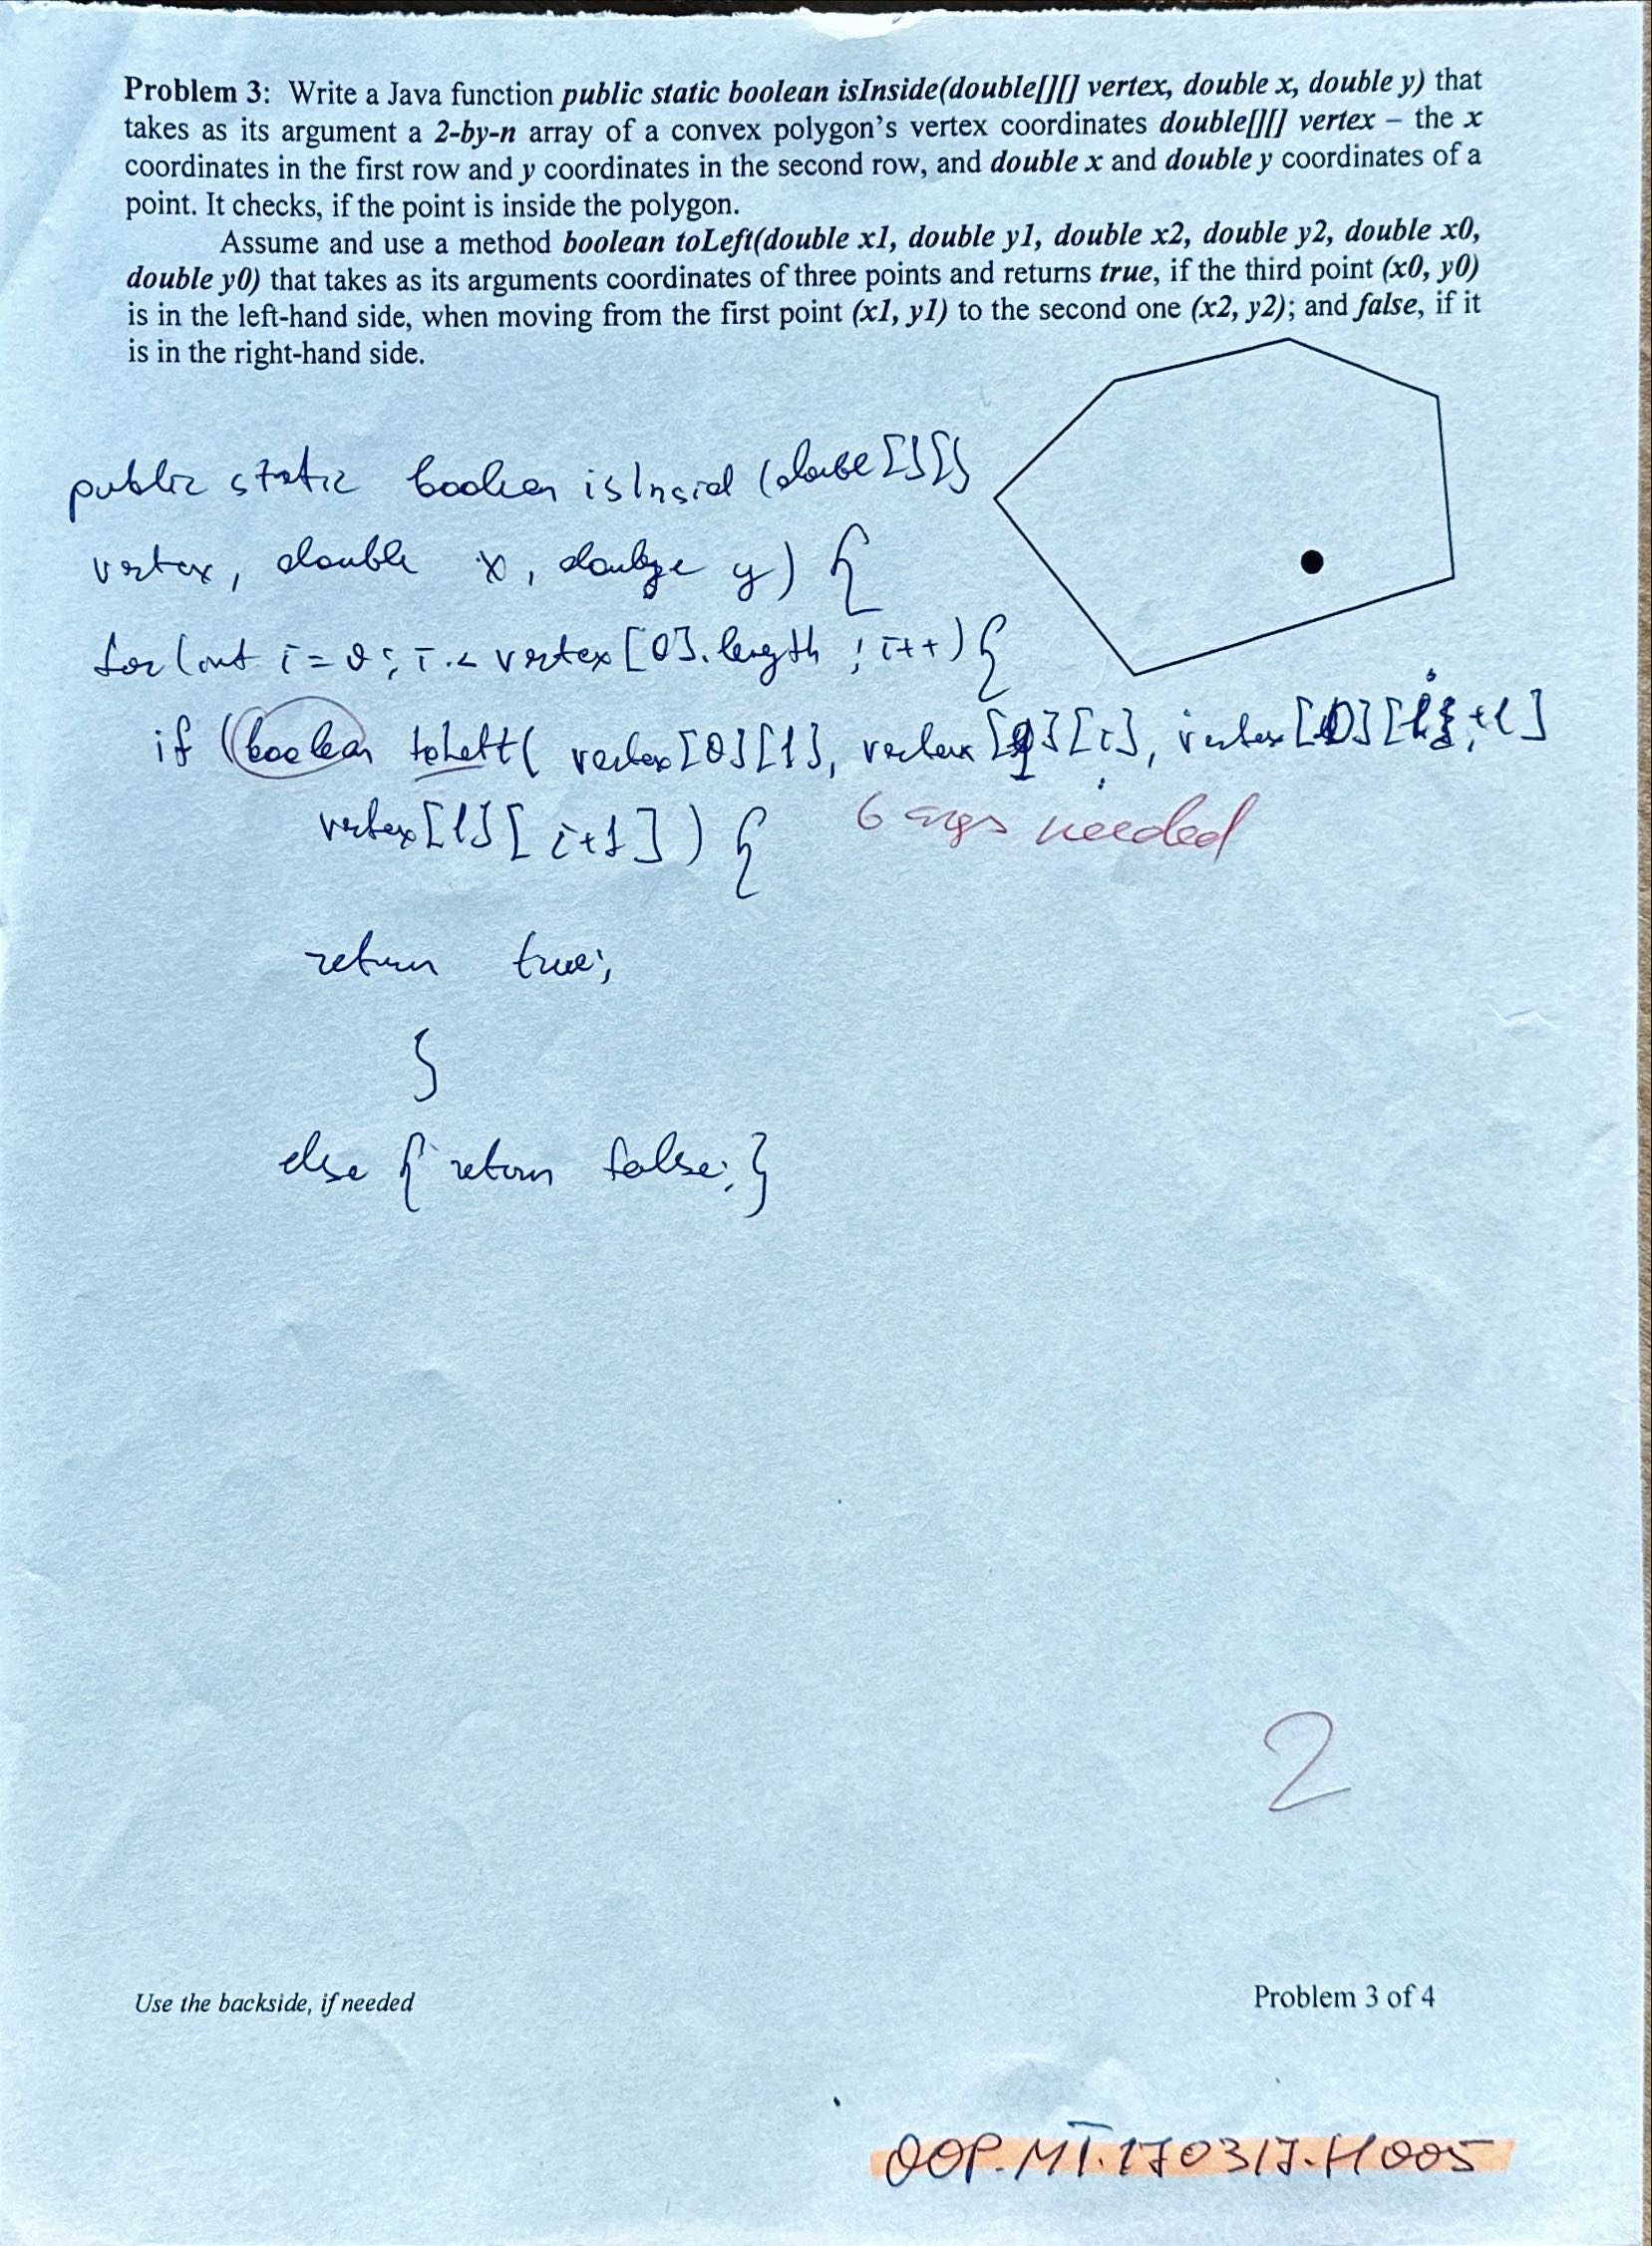 Problem 3: Write a Java function public static boolean isInside(double[][] vertex, double x, double y) that
takes as its argument a 2-by-n array of a convex polygon's vertex coordinates double[][] vertex – the x
coordinates in the first row and y coordinates in the second row, and double x and double y coordinates of a
point. It checks, if the point is inside the polygon.
Assume and use a method boolean toLeft(double x1, double y1, double x2, double y2, double x0,
double y0) that takes as its arguments coordinates of three points and returns true, if the third point (x0, y0)
is in the left-hand side, when moving from the first point (x1, y1) to the second one (x2, y2); and false, if it
is in the right-hand side.
public static boolean isInsid (double[][]
vertex, double x, double y) {
for (int i = 0; i < vertex[0].length ; i++) {
if (boolean toLeft( vertex[0][1], vertex[1][i], vertex[0][i+1]
vertex[1][i+1]) {
6 args needed
return true;
}
else { return false; }
2
Use the backside, if needed
Problem 3 of 4
OOP.MT.170317.H005